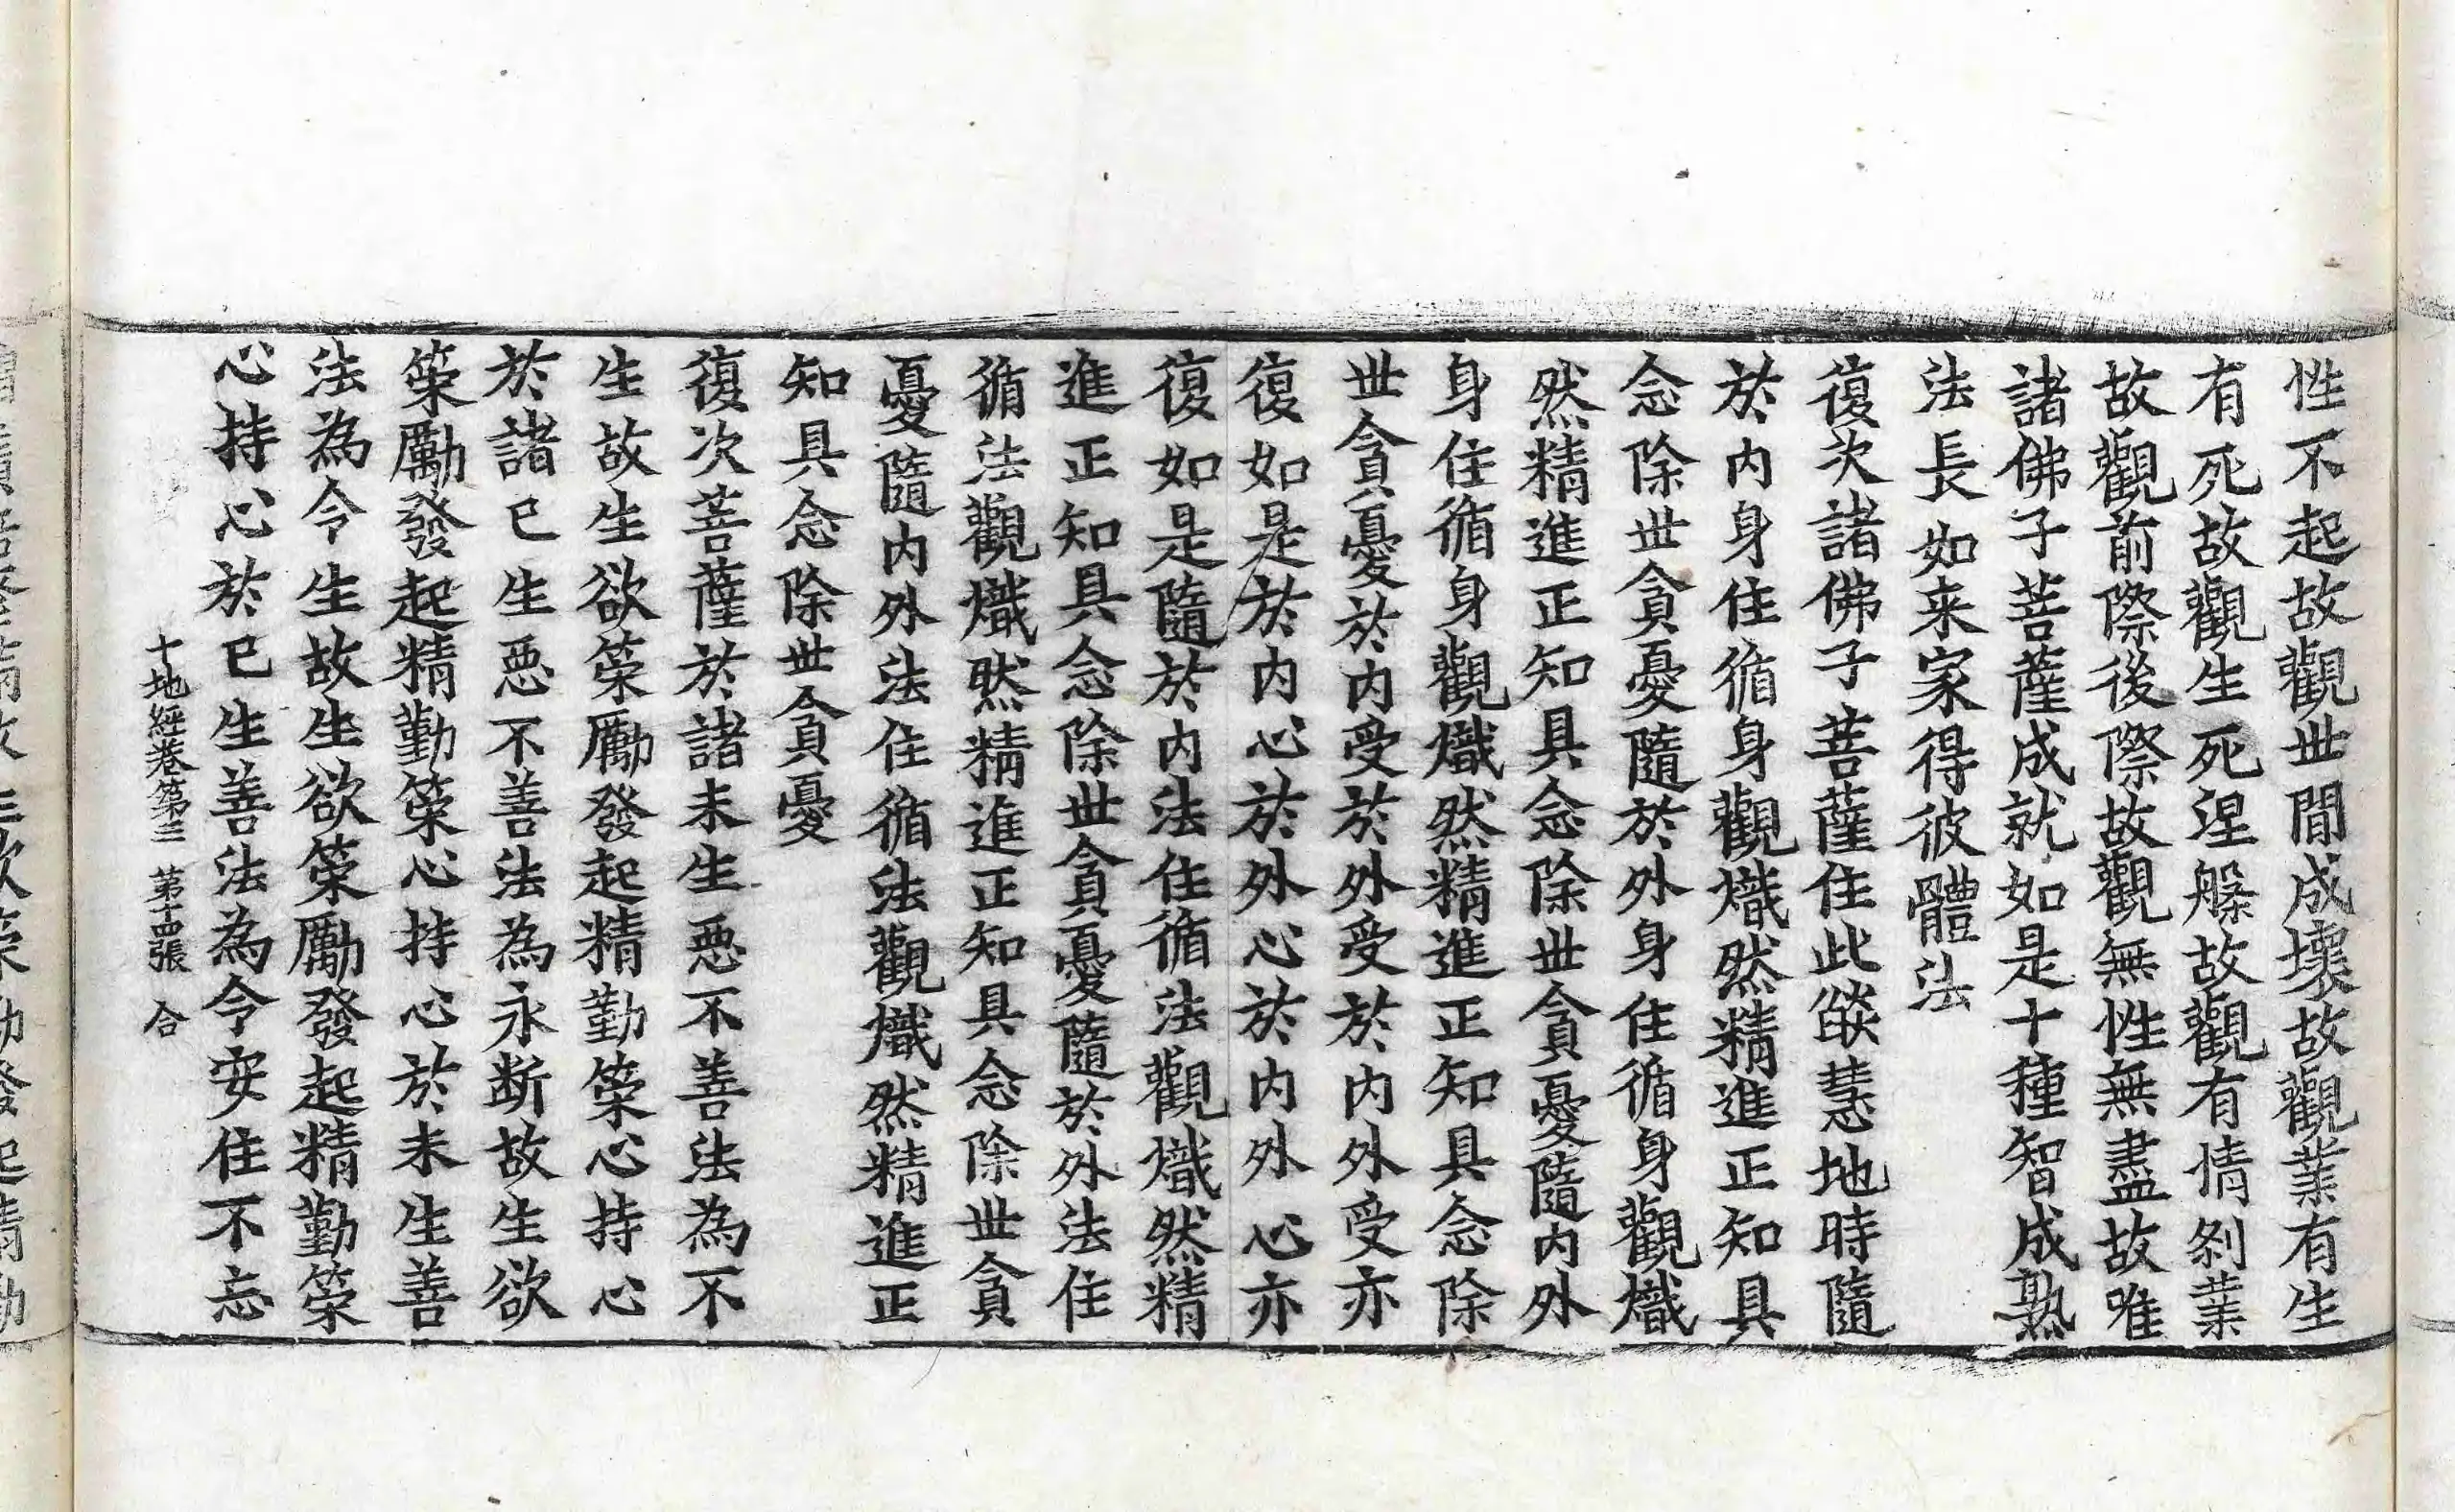 性不起故觀世間成壞故觀業有生
有死故觀生死涅槃故觀有情剎業
故觀前際後際故觀無性無盡故唯
諸佛子菩薩成就如是十種智成熟
法長如来家得彼體法
復次諸佛子菩薩住此燄慧地時隨
於内身住循身觀熾然精進正知具
念除世貪憂隨於外身住循身觀熾
然精進正知具念除世貪憂隨内外
身住循身觀熾然精進正知具念除
世貪憂於内受於外受於内外受亦
復如是於内心於外心於内外心亦
復如是隨於内法住循法觀熾然精
進正知具念除世貪憂隨於外法住
循法觀熾然精進正知具念除世貪
憂隨内外法住循法觀熾然精進正
知具念除世貪憂
復次菩薩於諸未生惡不善法為不
生故生欲策勵發起精勤策心持心
於諸已生惡不善法為永断故生欲
策勵發起精勤策心持心於未生善
法為令生故生欲策勵發起精勤策
心持心於已生善法為令安住不忘
十地經卷第三 第十四張 合